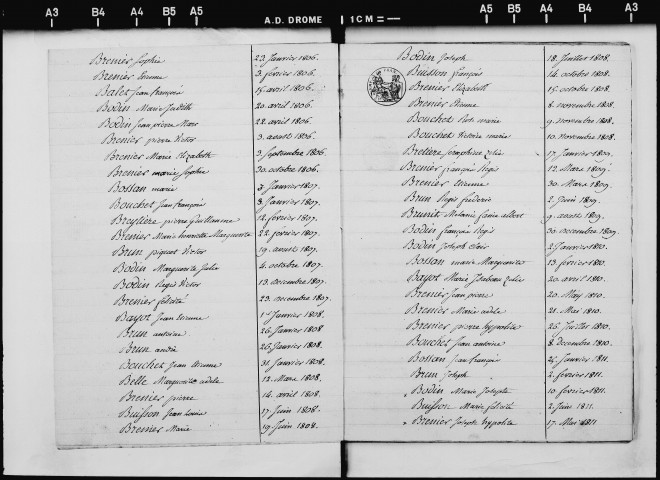 A3 B4 A4 B5 A5 A.D. DROME 1CM= A5 B5 A4 B4 A3
Brenier Sophie 23 Janvier 1806.
Brenier Etienne 3 fevrier 1806.
Balet Jean françois 15 avril 1806.
Bodin Marie Judith 20 avril 1806.
Bodin Jean pierre Marc 22 avril 1806.
Brenier pierre Victor 3 aoust 1806.
Brenier Marie Elizabeth 3 Septembre 1806.
Brenier marie Sophie 30 octobre 1806.
Bossan marie 3 Janvier 1807.
Bouchet Jean françois 8 Janvier 1807.
Breylière pierre Guillaume 12 fevrier 1807.
Brenier Marie henriette Marguerite 22 fevrier 1807.
Brun Victor 19 aoust 1807.
Bodin Marguerite Julie 4 octobre 1807.
Bodin Regis Victor 13 decembre 1807.
Brenier félicité 23 decembre 1807.
Bayot Jean Etienne 1er Janvier 1808.
Brun antoine 26 Janvier 1808
Brun andré 26 Janvier 1808.
Bouchet Jean Etienne 31 Janvier 1808.
Belle Marguerite adele 13 Mars 1808.
Brenier pierre 14 avril 1808.
Buisson Jean Louis 17 Juin 1808.
Brenier Marie 19 Juin 1808.
Bodin Joseph 18 Juillet 1808.
Buisson françois 14 octobre 1808.
Brenier Elizabeth 15 octobre 1808.
Brenier Etienne 8 novembre 1808.
Bouchet Rose marie 9 novembre 1808.
Bouchet Victoire marie 10 novembre 1808.
Bretiere Seraphine Zelie 17 Janvier 1809.
Brenier françois Regis 12 Mars 1809.
Brenier Etienne 30 Mars 1809.
Brun Regis frederic 2 Juin 1809.
Brunit albert 9 aoust 1809.
Bodin françois Regis 30 decembre 1809.
Bodin Joseph 2 Janvier 1810.
Bossan marie Marguerite 13 fevrier 1810.
Bayot Marie Zelie 20 avril 1810.
Brenier Jean pierre 20 May 1810.
Brenier Marie adele 21 Mai 1810.
Brenier pierre hyppolite 26 Juillet 1810.
Bouchet Jean antoine 8 decembre 1810.
Bossan Jean françois 25 Janvier 1811.
Brun Joseph 2 fevrier 1811.
Bodin Marie Josephe 10 fevrier 1811.
Buisson Marie felicité 2 Juin 1811.
Brenier Joseph hyppolite 17 Mai 1811